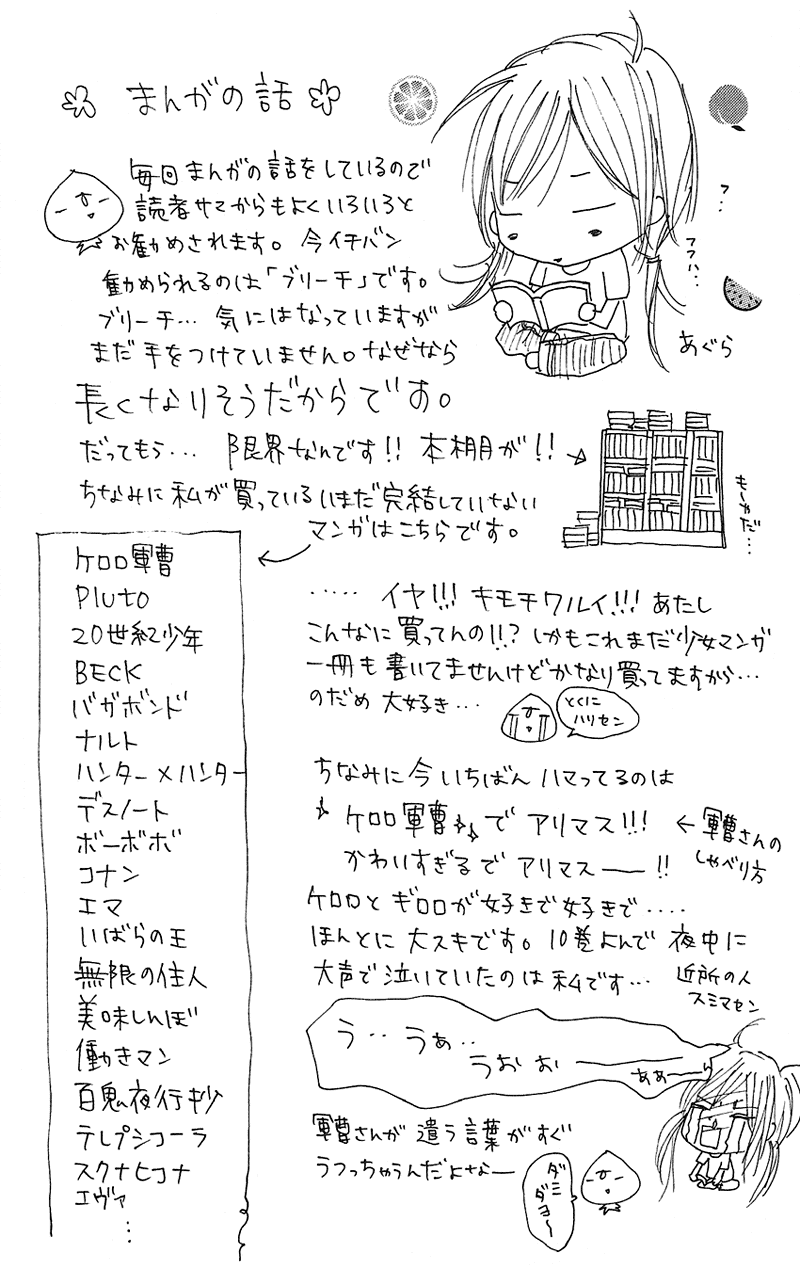 まんがの話
毎回まんがの話をしているので
読者サマからもよくいろいろと
お勧めされます。今イチバン
勧められるのは「ブリーチ」です。
ブリーチ… 気にはなっていますが
まだ手をつけていません。なぜなら
長くなりそうだからです。
フ…
フフハ…
あぐら
だってもう… 限界なんです!! 本棚が!!
も〜やだ…
ちなみに私が買っているいまだ完結していない
マンガはこちらです。
ケロロ軍曹
Pluto
20世紀少年
BECK
バガボンド
ナルト
ハンター×ハンター
デスノート
ボーボボ
コナン
エマ
いばらの王
無限の住人
美味しんぼ
働きマン
百鬼夜行抄
テレプシコーラ
スクナヒコナ
エヴァ
…
‥‥‥ イヤ!!! キモチワルイ!!! あたし
こんなに買ってんの!!? しかもこれまだ少女マンガ
一冊も書いてませんけどかなり買ってますから…
のだめ 大好き…
とくに
ハリセン
ちなみに今いちばんハマってるのは
ケロロ軍曹でアリマス!!!
←軍曹さんの
しゃべり方
かわいすぎるでアリマス――!!
ケロロとギロロが好きで好きで‥‥
ほんとに大スキです。10巻よんで夜中に
大声で泣いていたのは私です…
近所の人
スミマセン
う‥うぁ‥
うおぉ――
ああ〜
軍曹さんが遣う言葉がすぐ
うつっちゃうんだよなー
ダミ
ダヨ〜